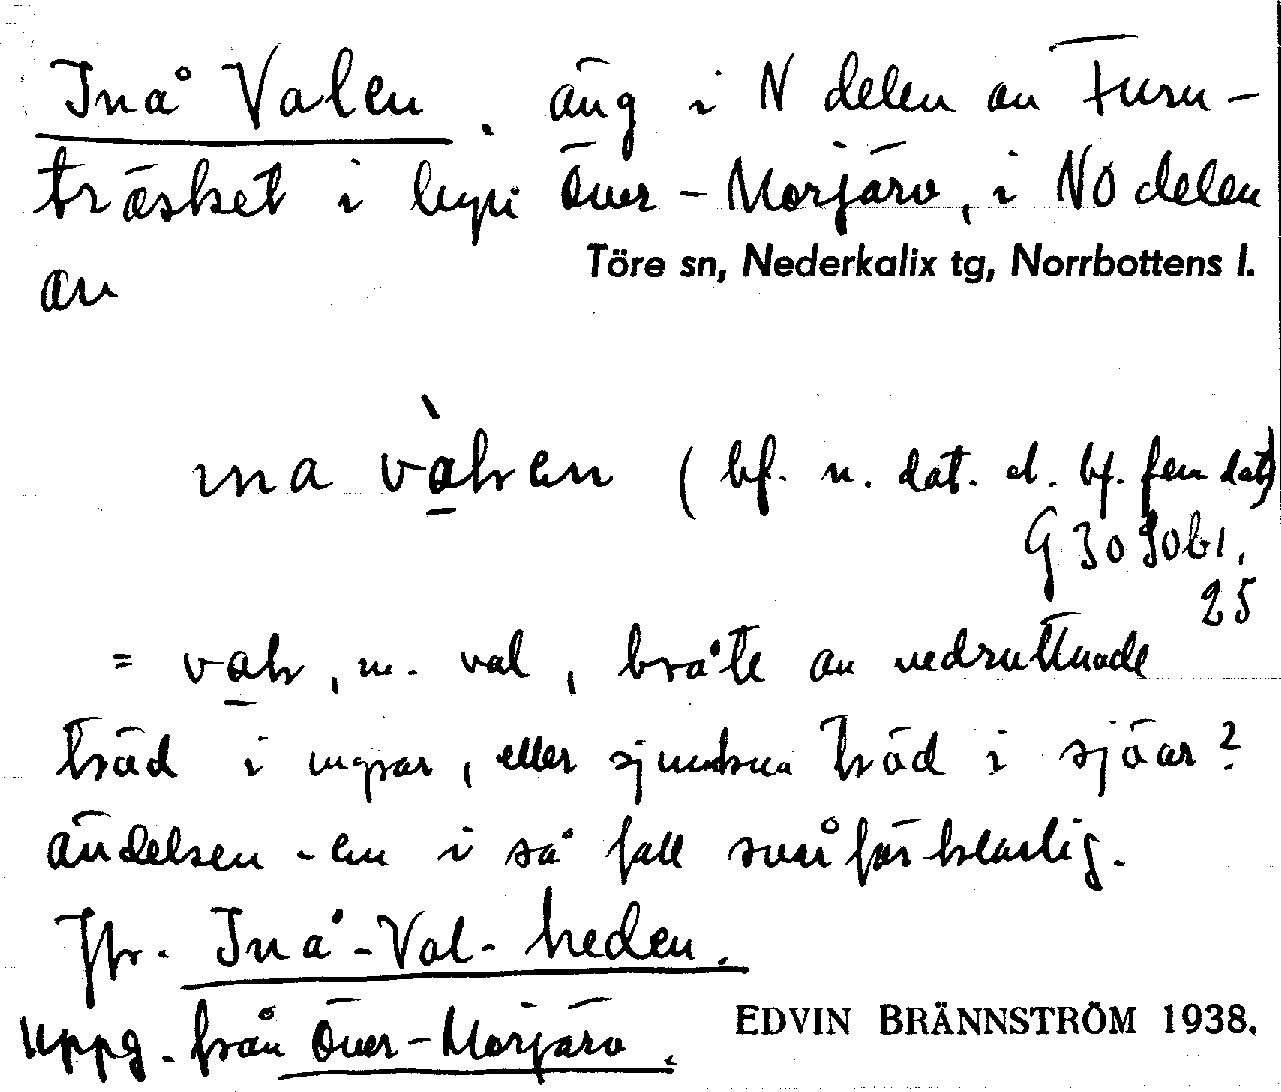 Inå Valen. äng i N delen av Furu-
träsket i byn Över-Morjärv, i NO delen
av
Töre sn, Nederkalix tg, Norrbottens l.
ına vàlıen (bf. n. dat. el. bf. fem dat)
G 30 90b1,
25
= val, m. val, bråte av nedruttnade
träd i myrar, eller sjunkna träd i sjöar?
ändelsen -en i så fall svårförklarlig.
Jfr. Inå-Val-heden.
Uppg. från Över-Morjärv.
EDVIN BRÄNNSTRÖM 1938.